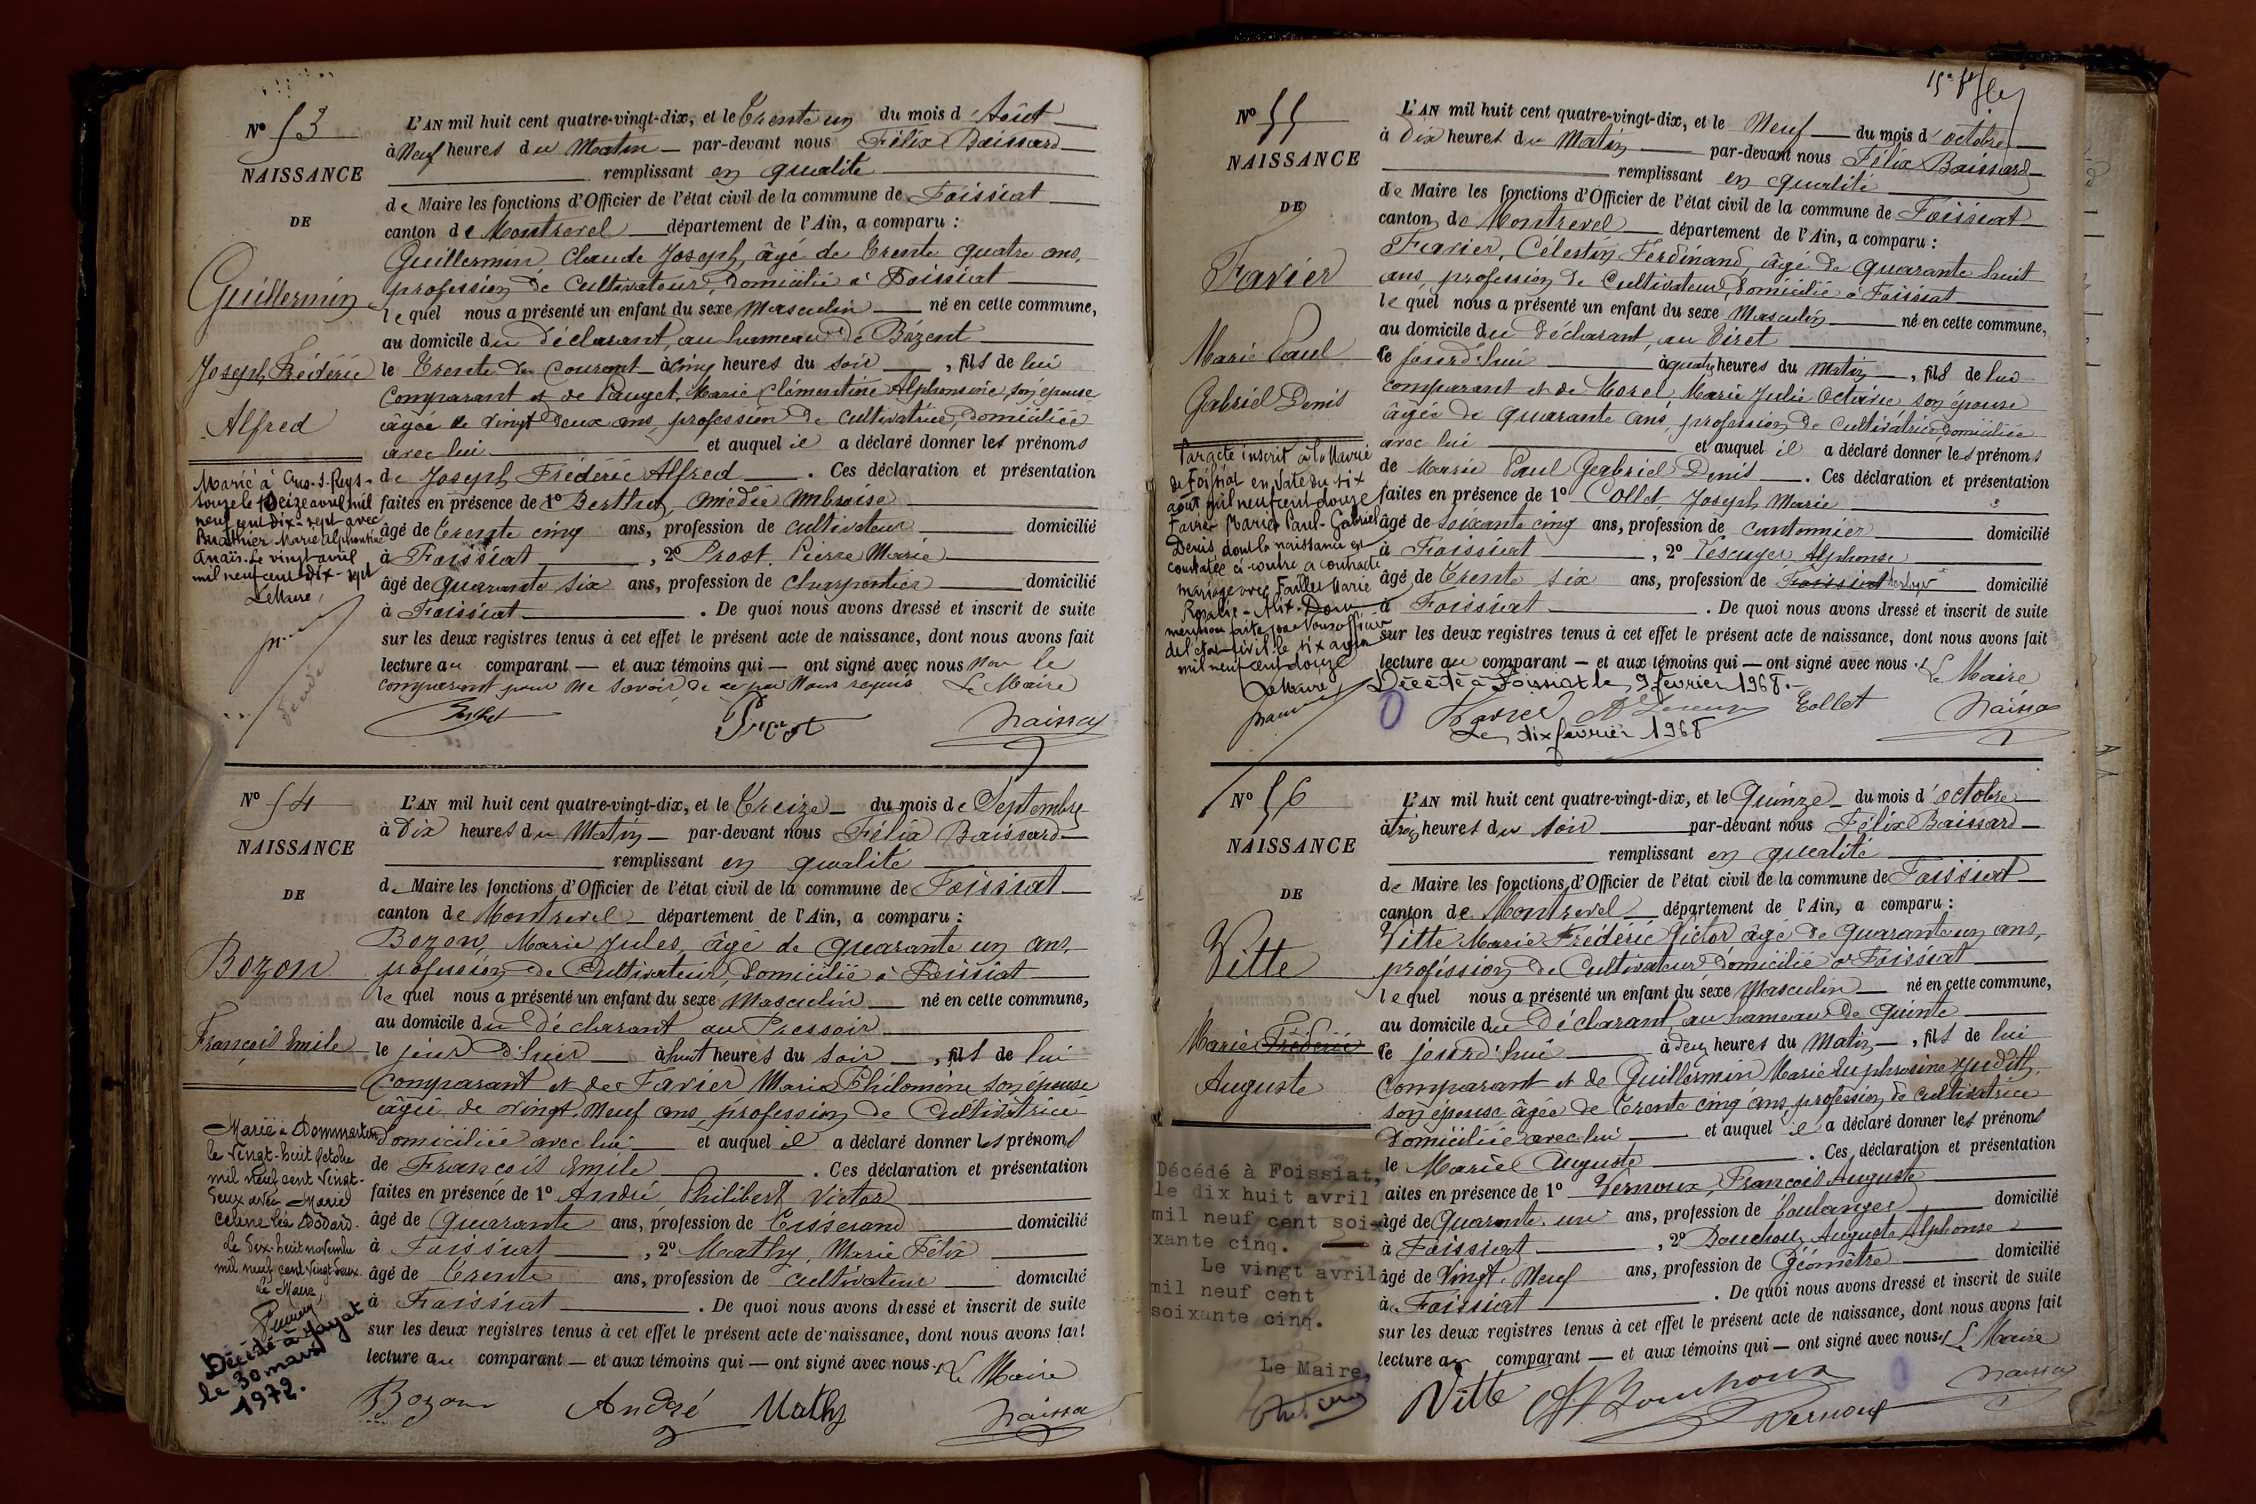 Nº 53
NAISSANCE
DE
Guillermin
Joseph Frédéric
Alfred
Marié à
le seize avril mil
neuf cent dix-sept avec
Marie Alphontine
Anaïs. Le vingt avril
mil neuf cent dix-sept
Le Maire,
L'AN mil huit cent quatre-vingt-dix, et le Trente un du mois d'Août
à Neuf heures du Matin par-devant nous Félix Baissard
remplissant en qualité
de Maire les fonctions d'Officier de l'état civil de la commune de Foissiat
canton de Montrevel département de l'Ain, a comparu :
Guillermin Claude Joseph, âgé de Trente quatre ans,
profession de Cultivateur, Domicilié à Foissiat
lequel nous a présenté un enfant du sexe Masculin né en cette commune,
au domicile du Déclarant, au hameau de Bézent
le Trente du Courant à cinq heures du soir, fils de lui
Comparant et de Pauget, Marie Clémentine Alphonsine, son épouse
âgée de vingt deux ans, profession de Cultivatrice, domiciliée
avec lui et auquel il a déclaré donner les prénoms
de Joseph Frédéric Alfred. Ces déclaration et présentation
faites en présence de 1º Berthet, Amédée Ambroise
âgé de Trente cinq ans, profession de cultivateur domicilié
à Foissiat, 2º Prost, Pierre Marie
âgé de quarante six ans, profession de Charpentier domicilié
à Foissiat. De quoi nous avons dressé et inscrit de suite
sur les deux registres tenus à cet effet le présent acte de naissance, dont nous avons fait
lecture au comparant — et aux témoins qui — ont signé avec nous non le
comparant pour ne savoir de ce par Nous requis Le Maire
Berthet Prost
Nº 54
NAISSANCE
DE
Bozon
François Emile
Marié à Dommartin
le vingt-huit octobre
mil neuf cent vingt-
deux avec Marie
Céline Léa Dodard.
Le dix-huit novembre
mil neuf cent vingt deux.
Le Maire,
Décédé à Jayat
le 30 mars
1972.
L'AN mil huit cent quatre-vingt-dix, et le Treize du mois de Septembre
à Dix heures du Matin par-devant nous Félix Baissard
remplissant en qualité
de Maire les fonctions d'Officier de l'état civil de la commune de Foissiat
canton de Montrevel département de l'Ain, a comparu :
Bozon, Marie Jules, âgé de quarante un ans,
profession de Cultivateur, Domicilié à Foissiat
lequel nous a présenté un enfant du sexe Masculin né en cette commune,
au domicile du Déclarant au Pressoir
le jour d'hier à huit heures du soir, fils de lui
Comparant et de Favier Marie Philomène son épouse
âgée de vingt neuf ans profession de Cultivatrice
Domiciliée avec lui et auquel il a déclaré donner les prénoms
de François Emile. Ces déclaration et présentation
faites en présence de 1º André Philibert Victor
âgé de Quarante ans, profession de Tisserand domicilié
à Foissiat, 2º Mathy Marie Félix
âgé de Trente ans, profession de cultivateur domicilié
à Foissiat. De quoi nous avons dressé et inscrit de suite
sur les deux registres tenus à cet effet le présent acte de naissance, dont nous avons fait
lecture au comparant — et aux témoins qui — ont signé avec nous Le Maire
Bozon André Mathy
Nº 55
NAISSANCE
DE
Favier
Marie Paul
Gabriel Denis
Par acte inscrit à la Mairie
de Foissiat en date du six
août mil neuf cent douze
Favier Marie Paul-Gabriel
Denis, dont la naissance est
constatée ci-contre a contracté
mariage avec Marie
Rosalie
mention faite par Nous officier
de l'état-civil le six août
mil neuf cent douze
Le Maire,
L'AN mil huit cent quatre-vingt-dix, et le Neuf du mois d'octobre
à Dix heures du Matin par-devant nous Félix Baissard
remplissant en qualité
de Maire les fonctions d'Officier de l'état civil de la commune de Foissiat
canton de Montrevel département de l'Ain, a comparu :
Favier, Célestin Ferdinand, âgé de quarante huit
ans, profession de Cultivateur, Domicilié à Foissiat
lequel nous a présenté un enfant du sexe Masculin né en cette commune,
au domicile du Déclarant, au Tiret
le jourd'hui à quatre heures du Matin, fils de lui
comparant et de Morel, Marie Julie Octavie son épouse
âgée de quarante ans, profession de Cultivatrice, Domiciliée
avec lui et auquel il a déclaré donner les prénoms
de Marie Paul Gabriel Denis. Ces déclaration et présentation
faites en présence de 1º Collet, Joseph Marie
âgé de soixante cinq ans, profession de cantonnier domicilié
à Foissiat, 2º Lescuyer Alphonse
âgé de Trente six ans, profession de Foissiat domicilié
à Foissiat. De quoi nous avons dressé et inscrit de suite
sur les deux registres tenus à cet effet le présent acte de naissance, dont nous avons fait
lecture au comparant — et aux témoins qui — ont signé avec nous Le Maire
Décédé à Foissiat le 9 février 1968.
Favier Collet
Le dix février 1968
Nº 56
NAISSANCE
DE
Vitte
Marie Frédéric
Auguste
Décédé à Foissiat,
le dix huit avril
mil neuf cent soi-
xante cinq.
Le vingt avril
mil neuf cent
soixante cinq.
Le Maire,
L'AN mil huit cent quatre-vingt-dix, et le Quinze du mois d'octobre
à trois heures du soir par-devant nous Félix Baissard
remplissant en qualité
de Maire les fonctions d'Officier de l'état civil de la commune de Foissiat
canton de Montrevel département de l'Ain, a comparu :
Vitte Marie Frédéric Victor âgé de quarante un ans,
profession de Cultivateur Domicilié à Foissiat
lequel nous a présenté un enfant du sexe Masculin né en cette commune,
au domicile du Déclarant, au hameau de Quinte
le jourd'hui à deux heures du Matin, fils de lui
Comparant et de Guillermin Marie Euphrosine Judith,
son épouse âgée de Trente cinq ans, profession de cultivatrice
Domiciliée avec lui et auquel il a déclaré donner les prénoms
de Marie Auguste. Ces déclaration et présentation
faites en présence de 1º Vernoux, François Auguste
âgé de Quarante un ans, profession de boulanger domicilié
à Foissiat, 2º Bouchoux Auguste Alphonse
âgé de Vingt Neuf ans, profession de Géomètre domicilié
à Foissiat. De quoi nous avons dressé et inscrit de suite
sur les deux registres tenus à cet effet le présent acte de naissance, dont nous avons fait
lecture au comparant — et aux témoins qui — ont signé avec nous Le Maire
Vitte Bouchoux
Vernoux